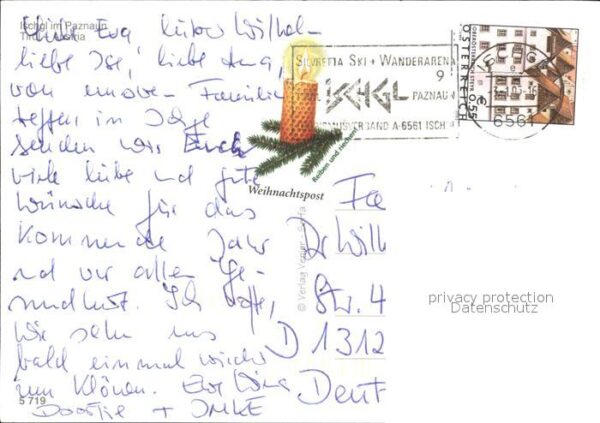 Ischgl im Paznaun
Tirol, Austria
Eva, lieber Wilhelm
liebe Ise, liebe
von unserer Familie
treffen in Ischgl
senden wir Euch
viele liebe und gute
Wünsche für das
kommende Jahr
und vor allem Ge-
sundheit. Ich hoffe,
wir sehn uns
bald einmal wieder
zum Klönen.
+ IMKE
5 719
SILVRETTA SKI + WANDERARENA
9
ISCHGL
PAZNAUN
A-6561
6561
ÖSTERREICH
€ 0,55
Reiben und riechen
Weihnachtspost
© Verlag
Fa
Dr Will
Str. 4
D 1312
Deut
privacy protection
Datenschutz